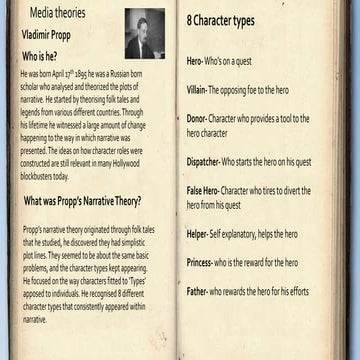 Media theories
Vladimir Propp
Who is he?
He was born April 17th 1895 he was a Russian born
scholar who analysed and theorized the plots of
narrative. He started by theorising folk tales and
legends from various different countries. Through
his lifetime he witnessed a large amount of change
happening to the way in which narrative was
presented. The ideas on how character roles were
constructed are still relevant in many Hollywood
blockbusters today.
What was Propp's Narrative Theory?
Propp's narrative theory originated through folk tales
that he studied, he discovered they had simplistic
plot lines. They seemed to be about the same basic
problems, and the character types kept appearing.
He focused on the way characters fitted to 'Types'
apposed to individuals. He recognised 8 different
character types that consistently appeared within
narrative.
8 Character types
Hero- Who's on a quest
Villain- The opposing foe to the hero
Donor- Character who provides a tool to the
hero character
Dispatcher- Who starts the hero on his quest
False Hero- Character who tires to divert the
hero from his quest
Helper- Self explanatory, helps the hero
Princess- who is the reward for the hero
Father- who rewards the hero for his efforts